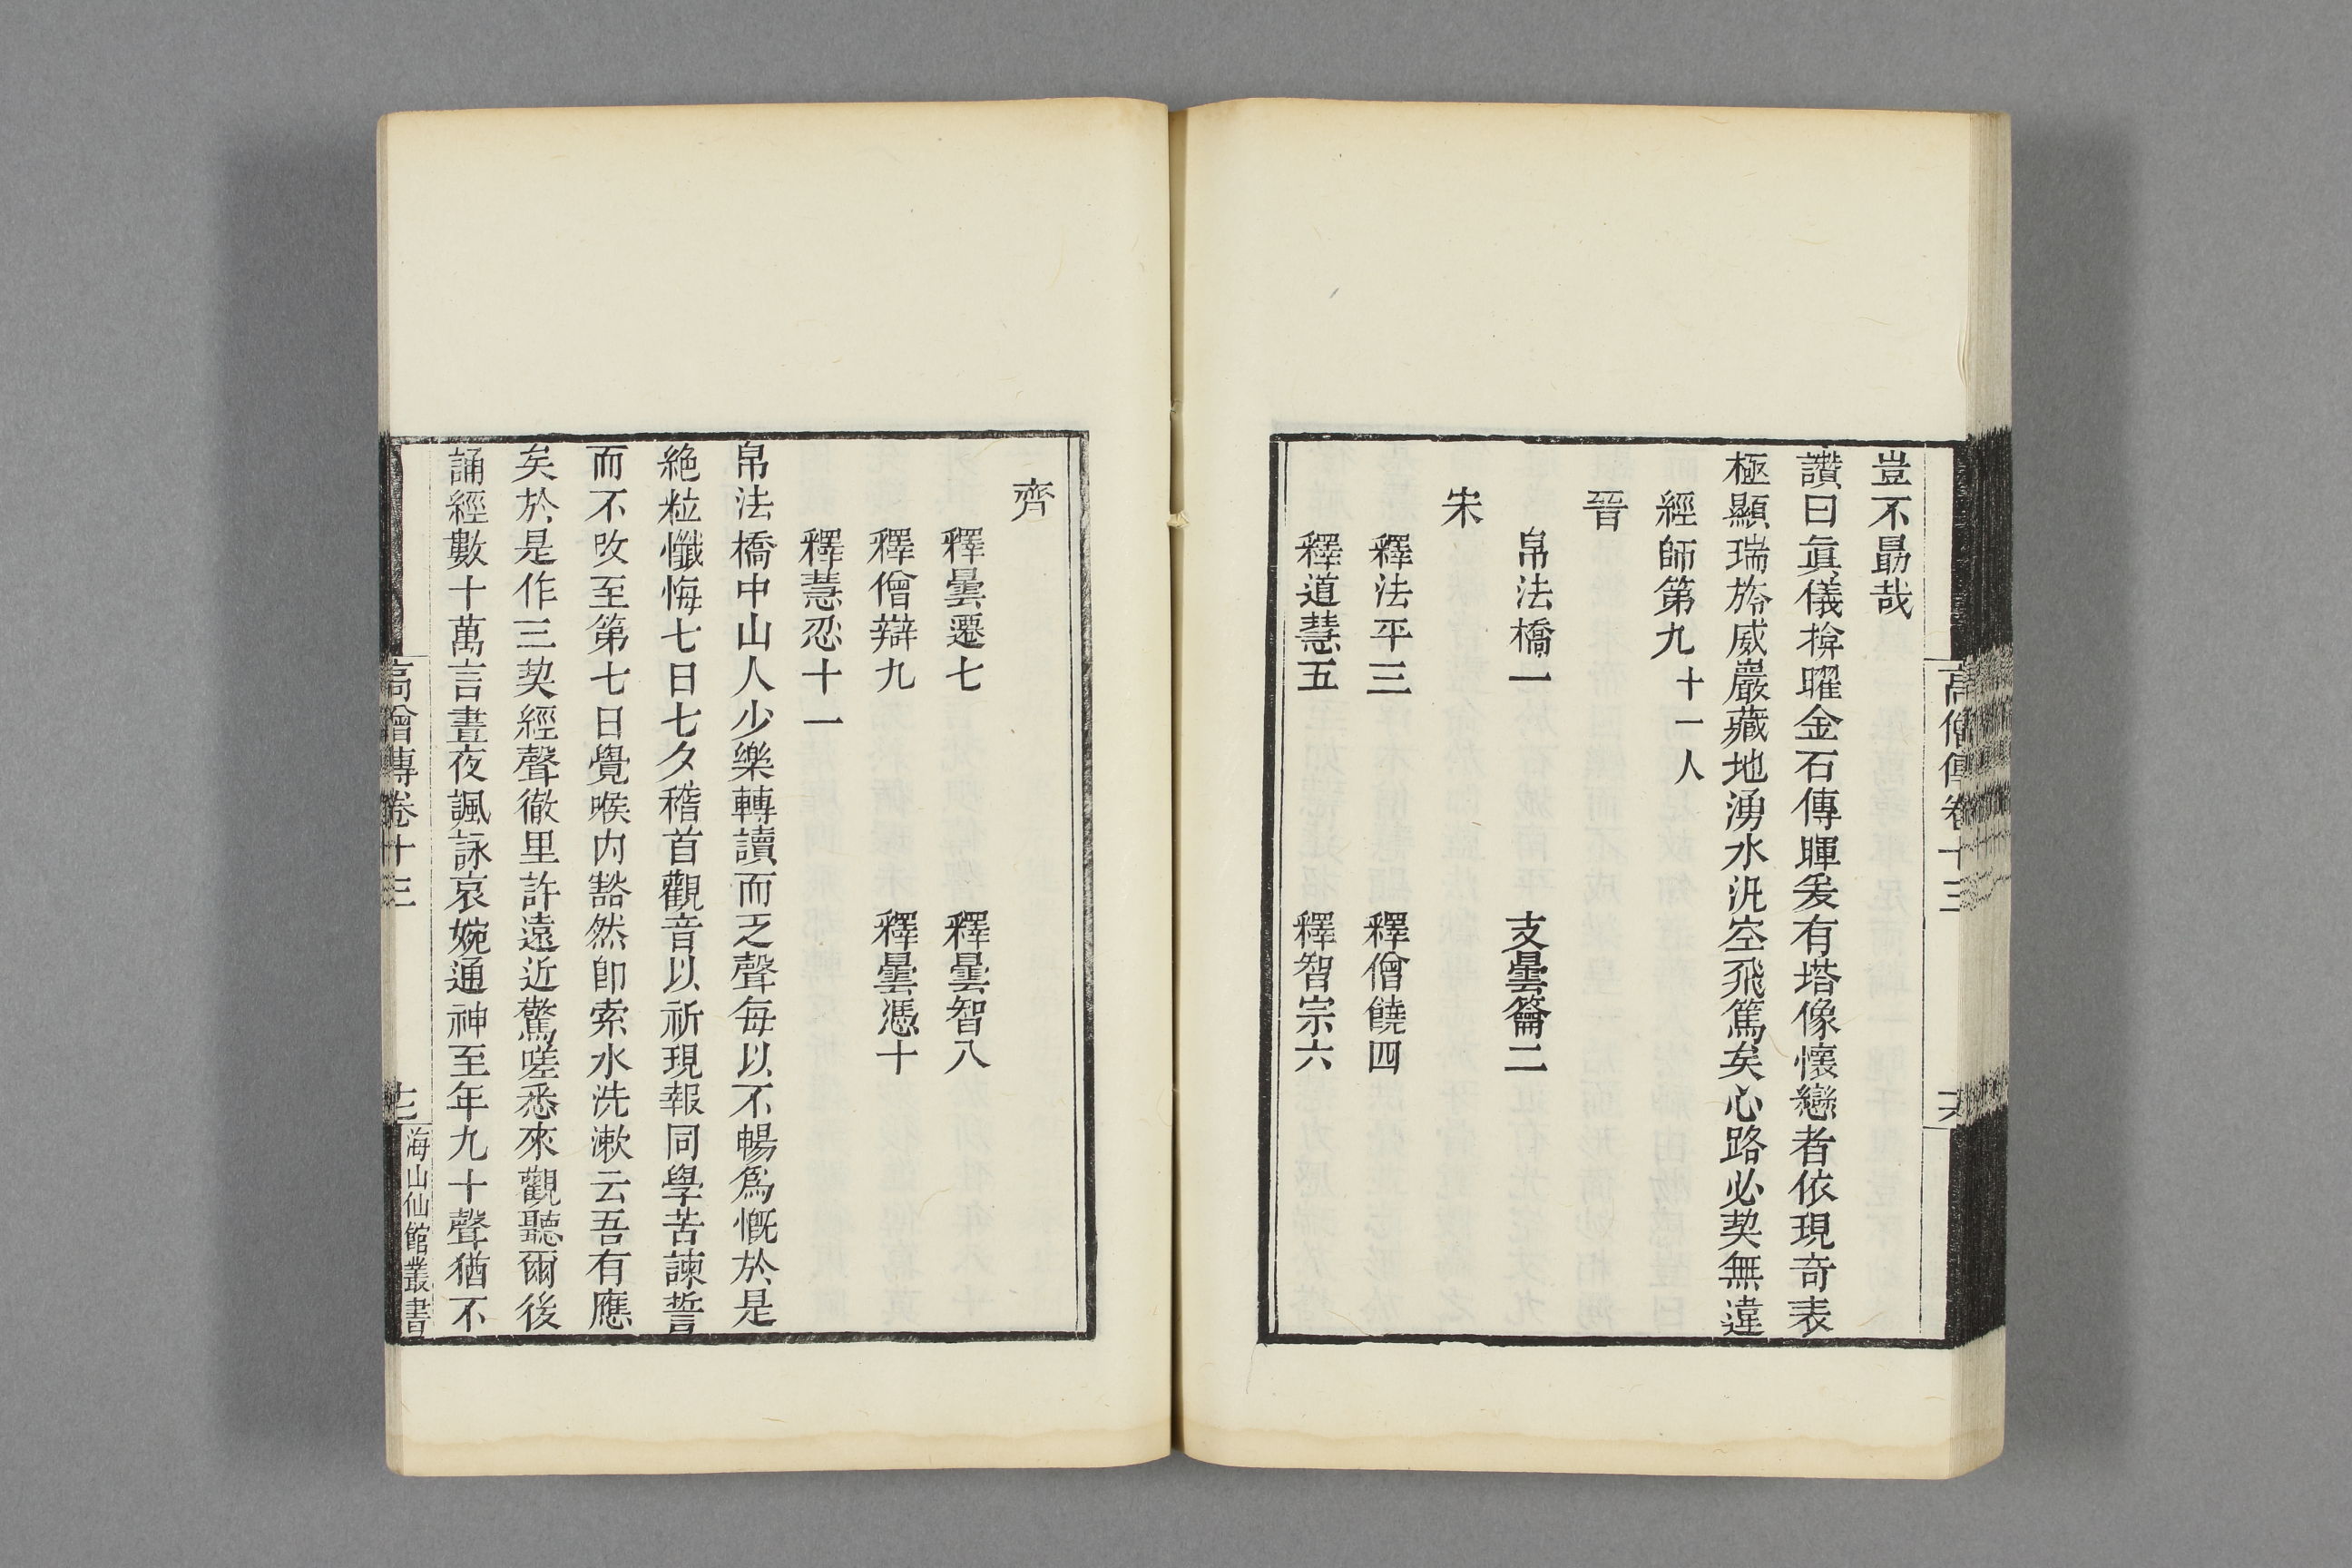 豈不勗哉
讚曰眞儀揜曜金石傳暉爰有塔像懷戀者依現奇表
極顯瑞旍威巖藏地湧水汎空飛篤矣心路必契無違
經師第九十一人
晉
帛法橋一 支曇籥二
宋
釋法平三 釋僧饒四
釋道慧五 釋智宗六
高僧傳卷十三
齊
釋曇遷七 釋曇智八
釋僧辯九 釋曇憑十
釋慧忍十一
帛法橋中山人少樂轉讀而乏聲每以不暢爲慨於是
絶粒懺悔七日七夕稽首觀音以祈現報同學苦諫誓
而不攺至第七日覺喉内豁然卽索水洗漱云吾有應
矣於是作三契經聲徹里許遠近驚嗟悉來觀聽爾後
誦經數十萬言晝夜諷詠哀婉通神至年九十聲猶不
高僧傳卷十三
海山仙館叢書